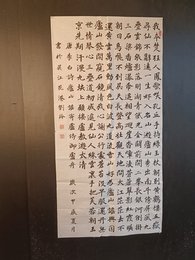 我本楚狂人鳳歌笑孔丘手持綠玉杖朝別黃鶴樓五嶽
尋仙不辭遠一生好入名山遊廬山秀出南斗傍屏風九
疊雲錦張影落明湖青黛光金闕前開二峰長銀河倒掛
三石梁香爐瀑布遙相望迴崖沓嶂凌蒼蒼翠影紅霞映
朝日鳥飛不到吳天長登高壯觀天地間大江茫茫去不
還黃雲萬里動風色白波九道流雪山好為廬山謠興因
廬山發閒窺石鏡清我心謝公行處蒼苔沒早服還丹無
世情琴心三疊道初成遙見仙人綵雲裏手把芙蓉朝玉
京先期汗漫九垓上願接盧敖遊太清
唐李白詩廬山謠寄盧侍御虛舟 歲次甲戌夏月
書於吳江花港